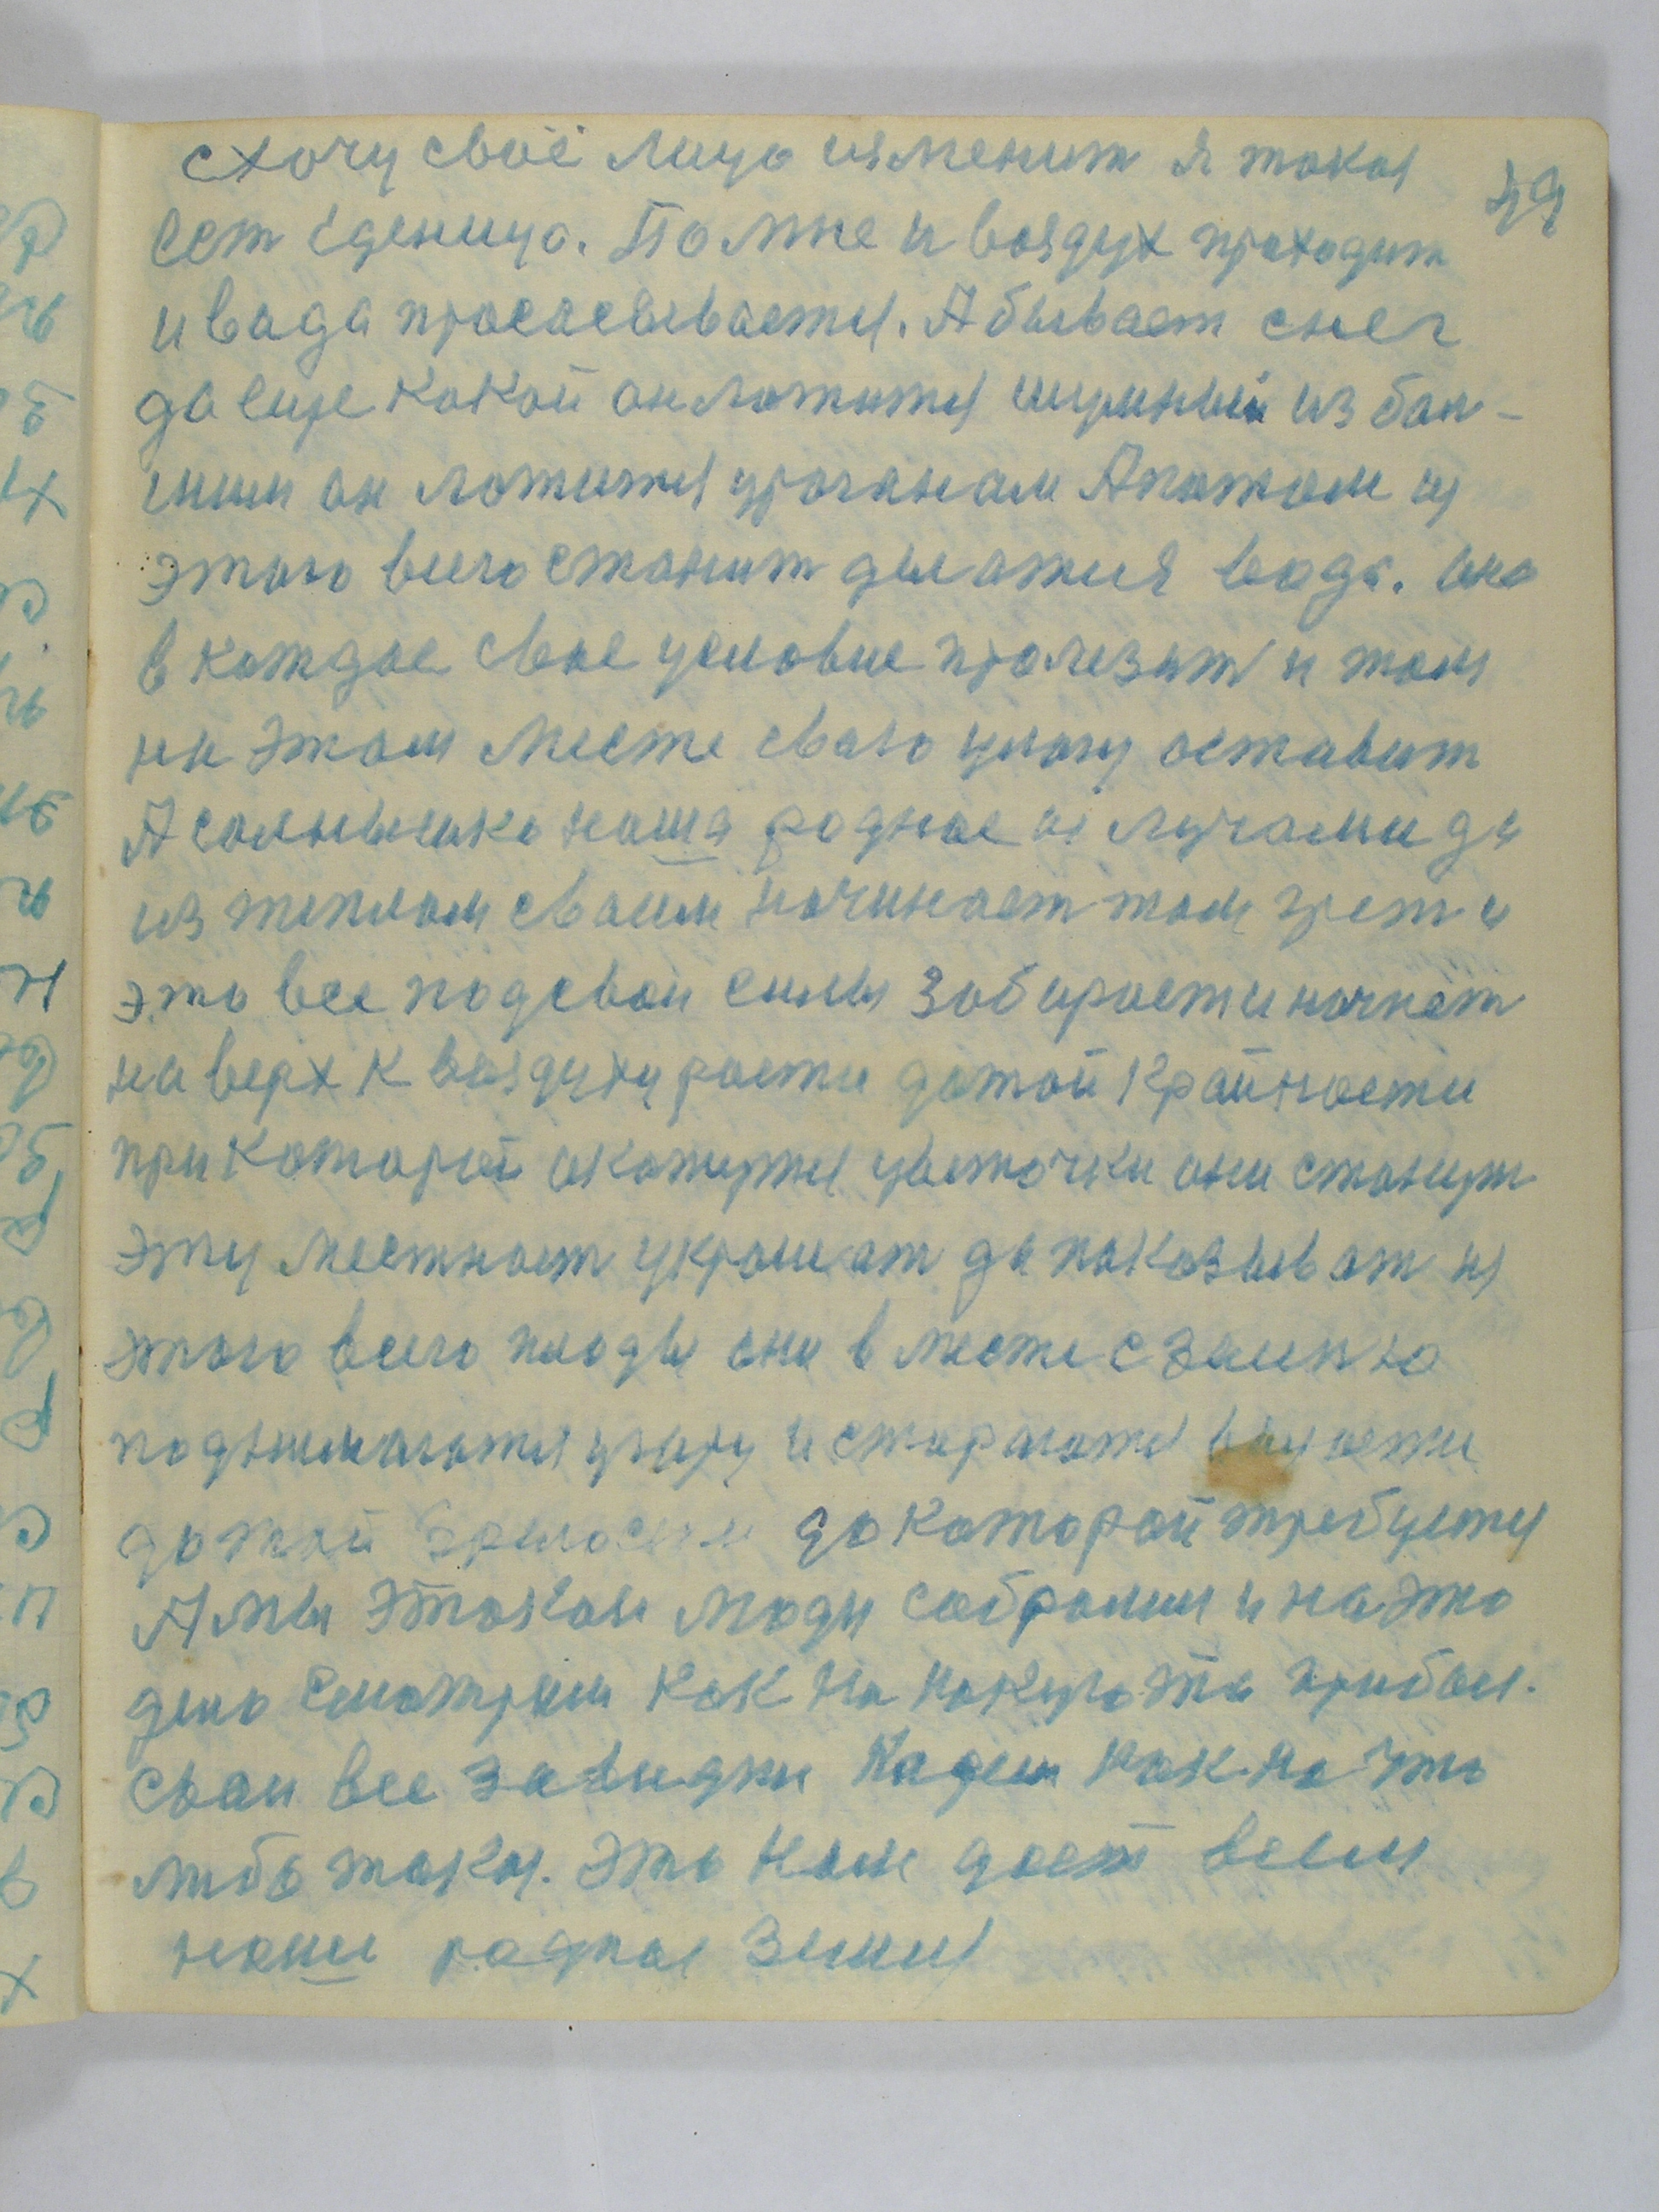 схочу своё лицо изменит я такая
49
ест еденица. По мне и воздух праходит
и вада прасасываится. А бывает снег
да еще какой он ложится шумный из бал-
шим он ложится ураганам А патом из
этаго всего станит делатися вада. она
в каждае свае условие пралезит и там
на этам месте сваю улагу оставит
А солнышко наша родное из лучами да
из теплам сваим начинает там грет и
это все под сваи силы забирает и начнёт
на верх к воздуху рости датой крайности
при каторой окажутся цветочки они станут
эту местност украшат да паказыват из
этаго всего плоды они в месте с землею
подынимаются у гару и стараются вырасти
до той зрелости до каторой требуется
А мы этокои люди собралии и на это
дело смотрим как на какую та прибыл.
сваи все завидки кадем как на что
либо такое. Это нам дает всем
наши родная земля